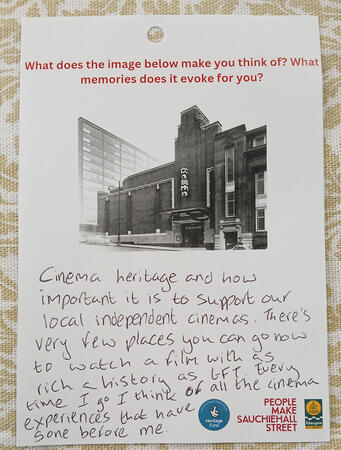 What does the image below make you think of? What
memories does it evoke for you?
Cinema heritage and how
important it is to support our
local independent cinemas. There's
very few places you can go now
to watch a film with as
rich a history as GFT. Every
time I go I think of all the cinema
experiences that have
gone before me.
Heritage
Fund
PEOPLE
MAKE
SAUCHIEHALL
STREET
Glasgow